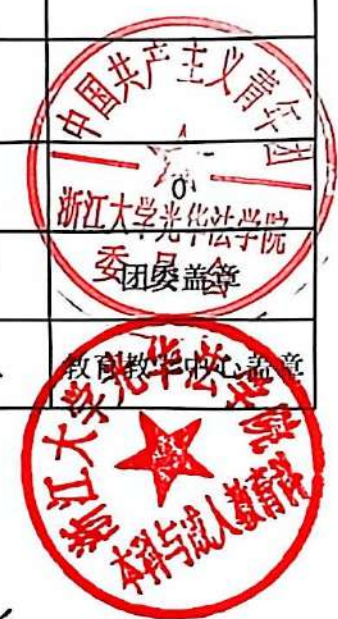 中国共产主义青年团
0
浙江大学光华法学院
委员会
团委盖章
教育教学中心盖章
浙江大学光华法学院
本科与成人教育科